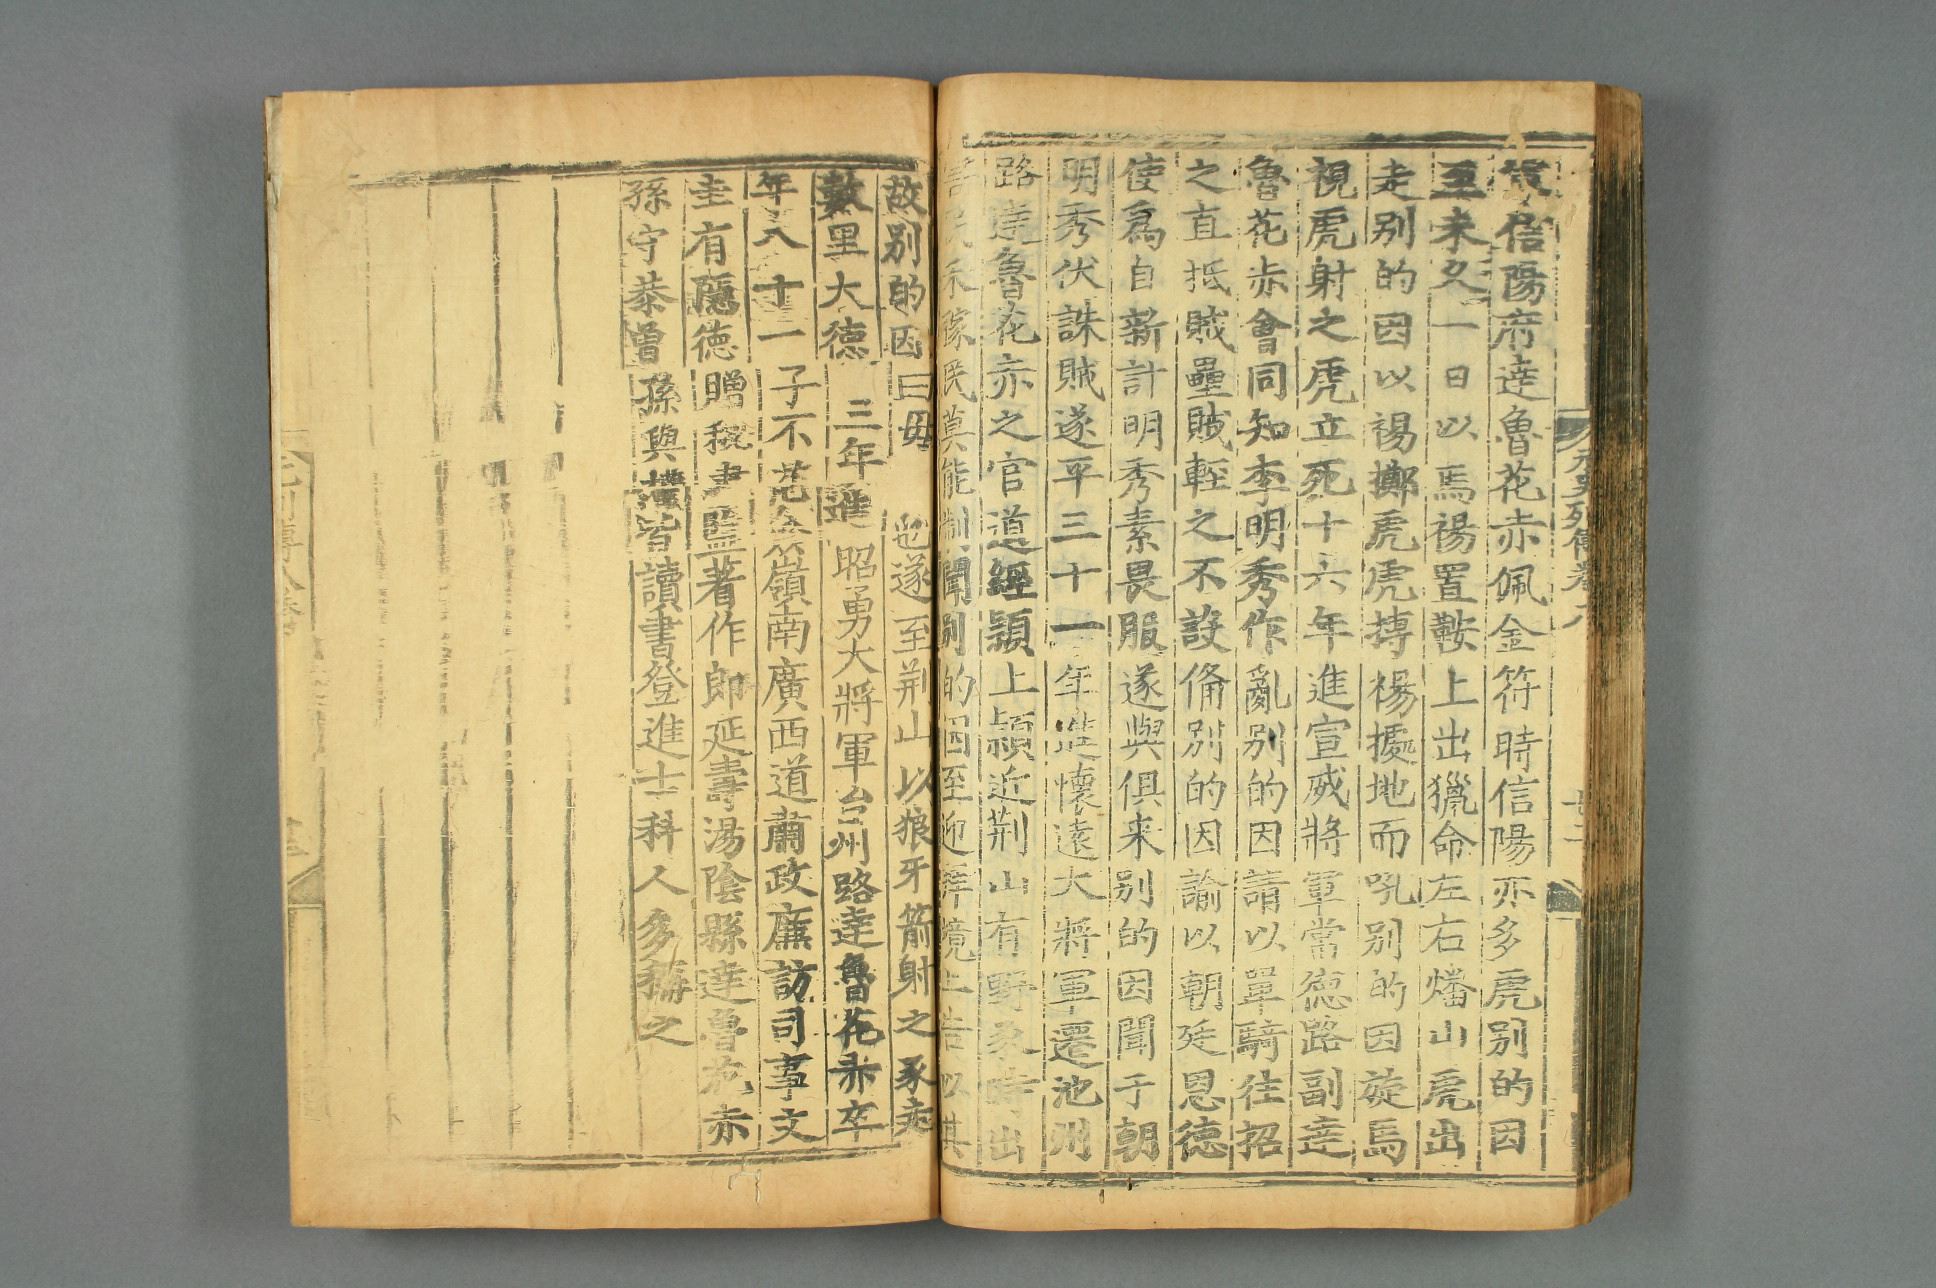 眞信陽府達魯花赤佩金符時信陽亦多虎别的因
至未久一日以馬裼置鞍上出獵命左右燔山虎出
走别的因以裼擲虎虎搏裼據地而吼别的因旋馬
視虎射之虎立死十六年進宣威將軍常德路副達
魯花赤會同知李明秀作亂别的因請以單騎往招
之直抵賊壘賊輕之不設備别的因諭以朝廷恩德
使爲自新計明秀素畏服遂與俱来别的因聞于朝
明秀伏誅賊遂平三十一年進懷遠大將軍遷池州
路達魯花赤之官道經潁上潁近荆山有野豕時出
害民禾稼民莫能制聞别的因至迎拜境上告以其
故别的因曰毋 也遂至荆山以狼牙箭射之豕走
數里大德 三年進昭勇大將軍台州路達魯花赤卒
年八十一子不花僉嶺南廣西道肅政廉訪司事文
圭有隱德贈秘書監著作郎延壽湯陰縣達魯花赤
孫守恭曾孫與權皆讀書登進士科人多稱之
元史列傳卷八